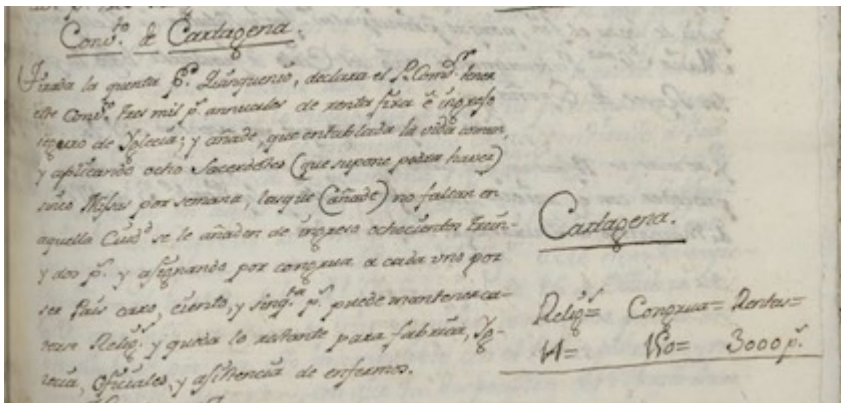 Conv.to de Cartagena.
Tirada la quenta p.r Quinquenio, declara el P. Comd.r tener
este Conv.to tres mil p.s annuales de renta fixa è ingreso
seguro de Yglecia; y añade, que entablada la vida comun,
y aplicando ocho Sacerdotes (que supone podra haver)
cinco Missas por semana, lasque (añade) no faltan en
aquella Ciud.d se le añaden de ingreso ochocientos trein-
y dos p.s y asignando por congrua a cada uno por
ser Pais caro, ciento, y sinq.ta p.s puede mantener ca-
torse Relig.s y queda lo restante para fabrica, Yg-
lecia, Oficiales, y asistencia de enfermos.
Cartagena.
Relig.s= Congrua= Rentas=
14= 150= 3000 p.s